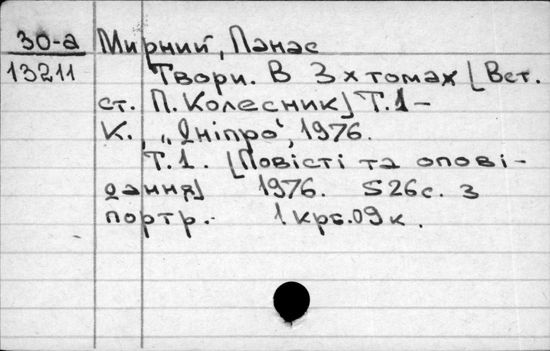 30-а Мирний, Панас
13211 Твори. В 3х томах [Вст.
ст. П. Колесник] Т.1-
К., „Дніпро“, 1976.
Т.1. [Повісті та опові-
дання] 1976. 526с. з
портр. 1 крб.09к.